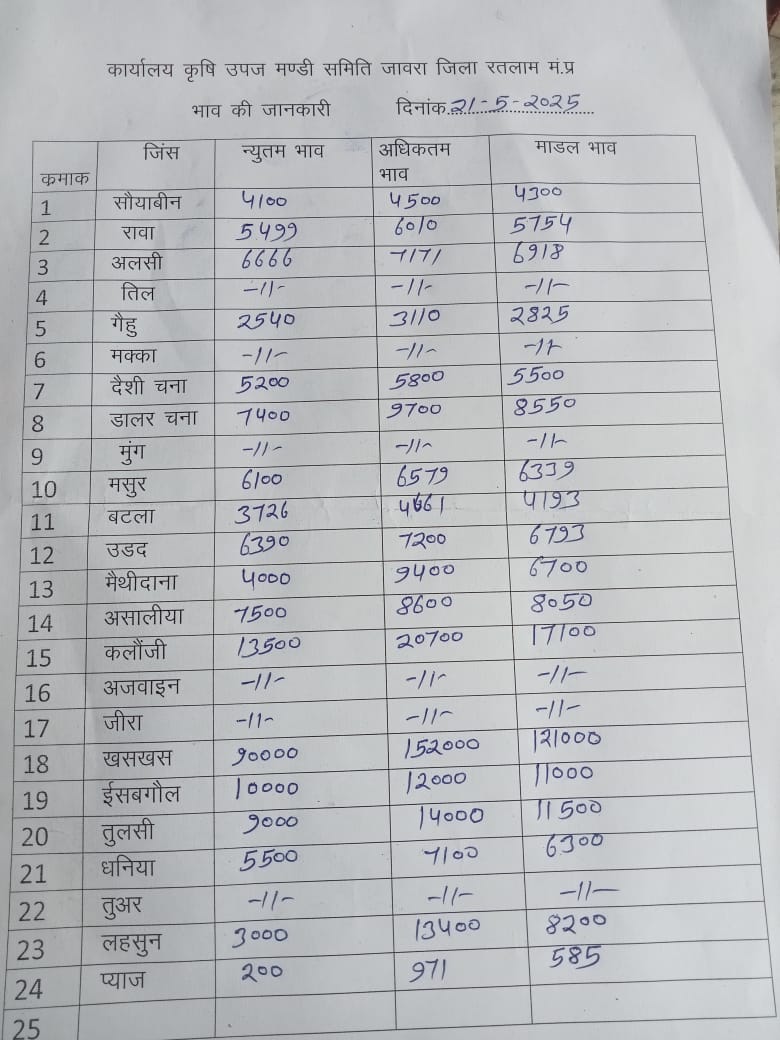 कार्यालय कृषि उपज मण्डी समिति जावरा जिला रतलाम मं.प्र
भाव की जानकारी दिनांक 21-5-2025
कमाक जिंस न्युतम भाव अधिकतम भाव माडल भाव
1 सौयाबीन 4100 4500 4300
2 रावा 5499 6010 5754
3 अलसी 6666 7171 6918
4 तिल -11- -11- -11-
5 गैहु 2540 3110 2825
6 मक्का -11- -11- -11-
7 दैशी चना 5200 5800 5500
8 डालर चना 7400 9700 8550
9 मुंग -11- -11- -11-
10 मसुर 6100 6579 6339
11 बटला 3726 4661 4193
12 उडद 6390 7200 6793
13 मैथीदाना 4000 9400 6700
14 असालीया 7500 8600 8050
15 कलौंजी 13500 20700 17100
16 अजवाइन -11- -11- -11-
17 जीरा -11- -11- -11-
18 खसखस 90000 152000 121000
19 ईसबगौल 10000 12000 11000
20 तुलसी 9000 14000 11500
21 धनिया 5500 7100 6300
22 तुअर -11- -11- -11-
23 लहसुन 3000 13400 8200
24 प्याज 200 971 585
25